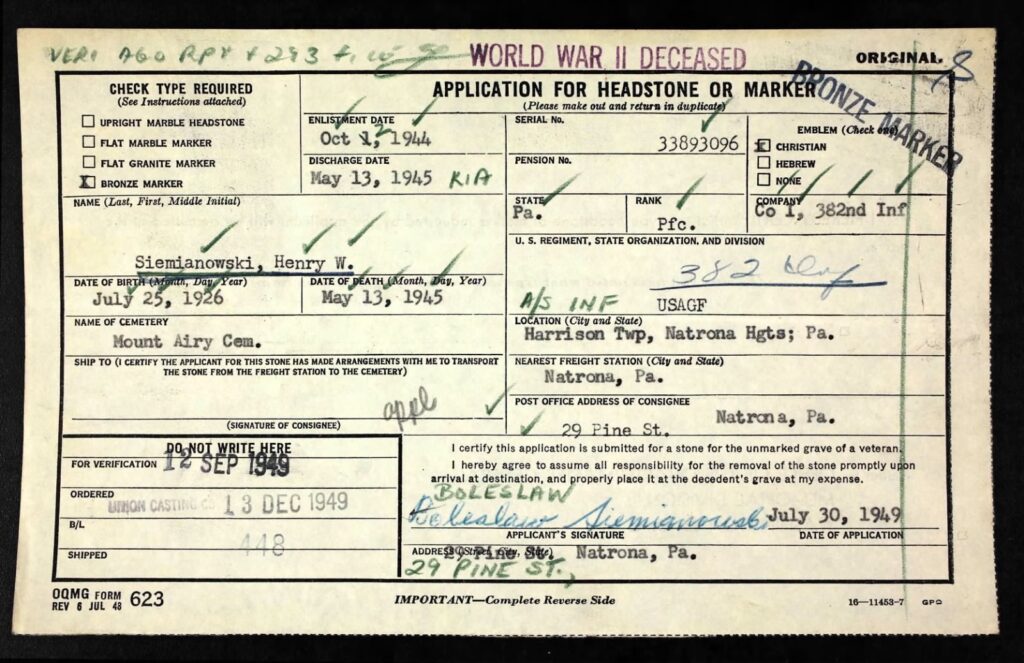 VERI AGO RPT + 293
WORLD WAR II DECEASED
ORIGINAL
BRONZE MARKER
CHECK TYPE REQUIRED
(See Instructions attached)
UPRIGHT MARBLE HEADSTONE
FLAT MARBLE MARKER
FLAT GRANITE MARKER
X BRONZE MARKER
APPLICATION FOR HEADSTONE OR MARKER
(Please make out and return in duplicate)
ENLISTMENT DATE
Oct 12, 1944
DISCHARGE DATE
May 13, 1945 KIA
SERIAL No.
33893096
PENSION No.
EMBLEM (Check one)
X CHRISTIAN
HEBREW
NONE
NAME (Last, First, Middle Initial)
Siemianowski, Henry W.
STATE
Pa.
RANK
Pfc.
COMPANY
Co I, 382nd Inf
U. S. REGIMENT, STATE ORGANIZATION, AND DIVISION
382 Inf
A/S INF USAGF
DATE OF BIRTH (Month, Day, Year)
July 25, 1926
DATE OF DEATH (Month, Day, Year)
May 13, 1945
NAME OF CEMETERY
Mount Airy Cem.
LOCATION (City and State)
Harrison Twp, Natrona Hgts; Pa.
SHIP TO (I CERTIFY THE APPLICANT FOR THIS STONE HAS MADE ARRANGEMENTS WITH ME TO TRANSPORT
THE STONE FROM THE FREIGHT STATION TO THE CEMETERY)
appl
(SIGNATURE OF CONSIGNEE)
NEAREST FREIGHT STATION (City and State)
Natrona, Pa.
POST OFFICE ADDRESS OF CONSIGNEE
Natrona, Pa.
29 Pine St.
DO NOT WRITE HERE
FOR VERIFICATION 12 SEP 1949
ORDERED
UNION CASTING CO 13 DEC 1949
B/L
448
SHIPPED
I certify this application is submitted for a stone for the unmarked grave of a veteran.
I hereby agree to assume all responsibility for the removal of the stone promptly upon
arrival at destination, and properly place it at the decedent's grave at my expense.
BOLESLAW
Boleslaw Siemianowski July 30, 1949
APPLICANT'S SIGNATURE DATE OF APPLICATION
ADDRESS (Street, City, State)
29 Pine St. Natrona, Pa.
29 PINE ST.,
OQMG FORM 623
REV 6 JUL 48
IMPORTANT—Complete Reverse Side
16—11453-7 GPO